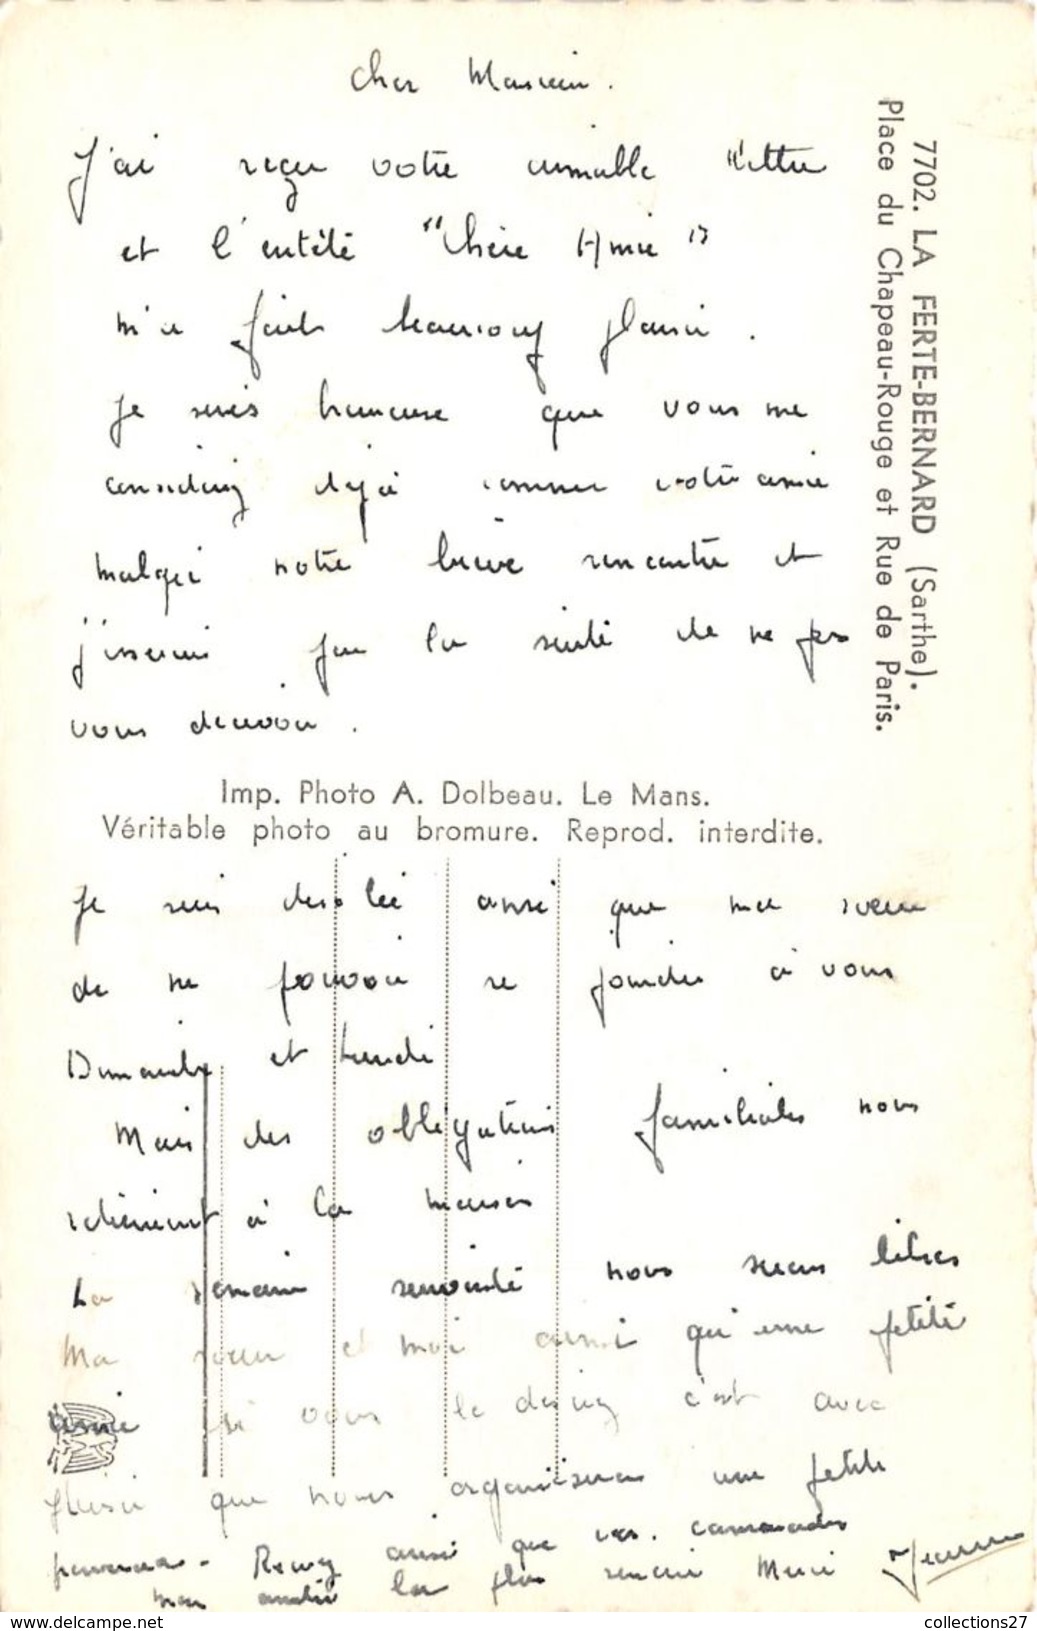 Cher Monsieur.
J'ai reçu votre aimable lettre
et l'entête "Chère Amie"
m'a fait beaucoup plaisir.
Je suis heureuse que vous me
considériez déjà comme votre amie
malgré notre brève rencontre et
j'essaierai par la suite de ne pas
vous décevoir.
7702. LA FERTE-BERNARD (Sarthe).
Place du Chapeau-Rouge et Rue de Paris.
Imp. Photo A. Dolbeau. Le Mans.
Véritable photo au bromure. Reprod. interdite.
Je suis désolée ainsi que ma soeur
de ne pouvoir se joindre à vous
Dimanche et Lundi
Mais des obligations familiales nous
retiennent à la maison
La semaine suivante nous serons libres
Ma soeur et moi ainsi qu'une petite
amie si vous le désirez c'est avec
plaisir que nous organiserons une petite
Recevez ainsi que vos camarades
mon amitié la plus sincère Merci
Jeanne
collections27